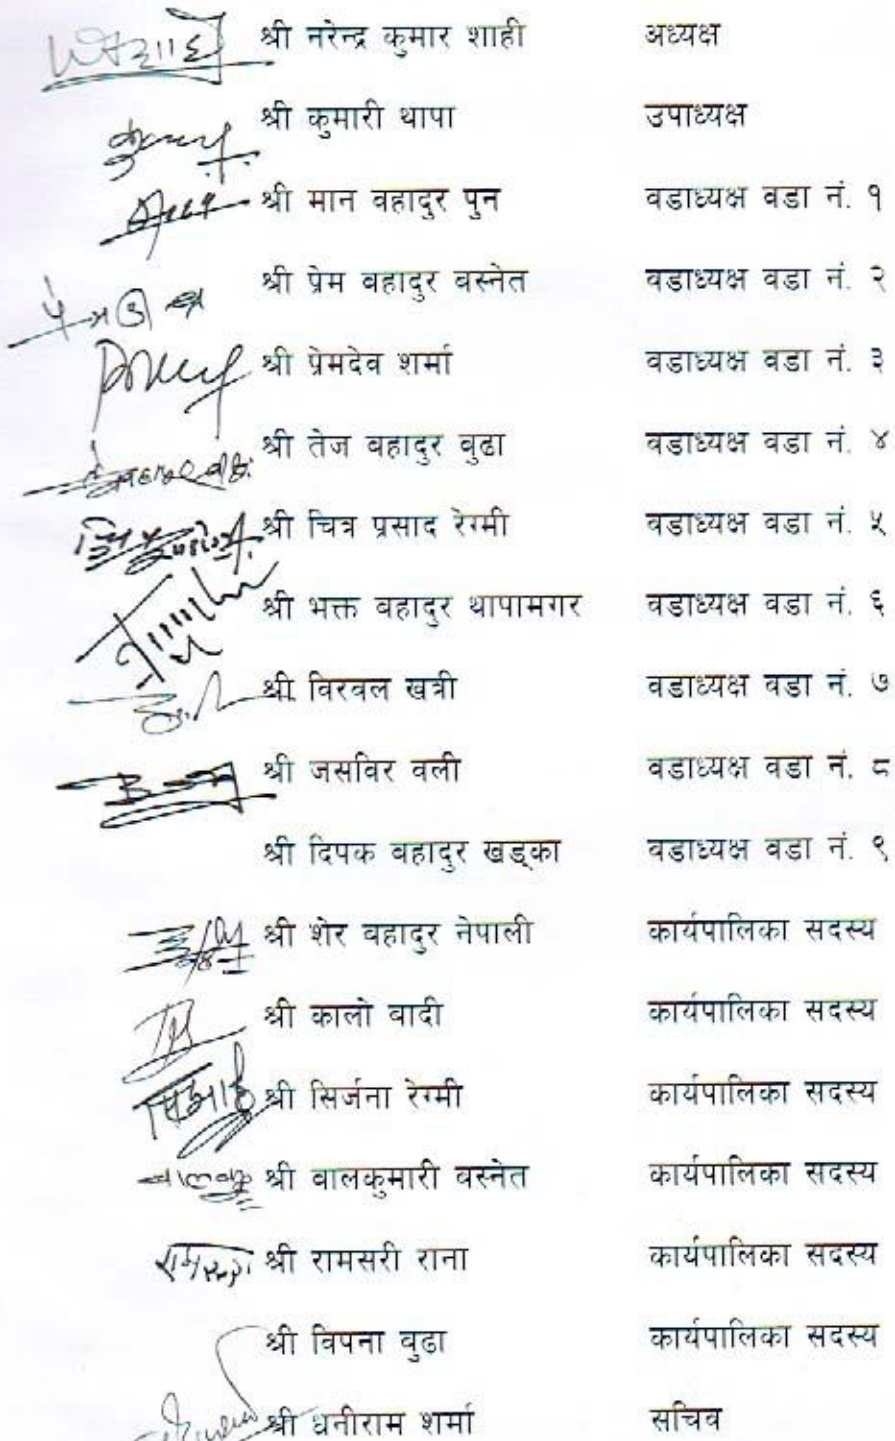 श्री नरेन्द्र कुमार शाही अध्यक्ष
श्री कुमारी थापा उपाध्यक्ष
श्री मान वहादुर पुन वडाध्यक्ष वडा नं. १
श्री प्रेम वहादुर वस्नेत वडाध्यक्ष वडा नं. २
श्री प्रेमदेव शर्मा वडाध्यक्ष वडा नं. ३
श्री तेज बहादुर वुढा वडाध्यक्ष वडा नं. ४
श्री चित्र प्रसाद रेग्मी वडाध्यक्ष वडा नं. ५
श्री भक्त वहादुर थापामगर वडाध्यक्ष वडा नं. ६
श्री विरवल खत्री वडाध्यक्ष वडा नं. ७
श्री जसविर वली वडाध्यक्ष वडा नं. ८
श्री दिपक वहादुर खड्का वडाध्यक्ष वडा नं. ९
श्री शेर वहादुर नेपाली कार्यपालिका सदस्य
श्री कालो वादी कार्यपालिका सदस्य
श्री सिर्जना रेग्मी कार्यपालिका सदस्य
श्री वालकुमारी वस्नेत कार्यपालिका सदस्य
श्री रामसरी राना कार्यपालिका सदस्य
श्री विपना वुढा कार्यपालिका सदस्य
श्री धनीराम शर्मा सचिव